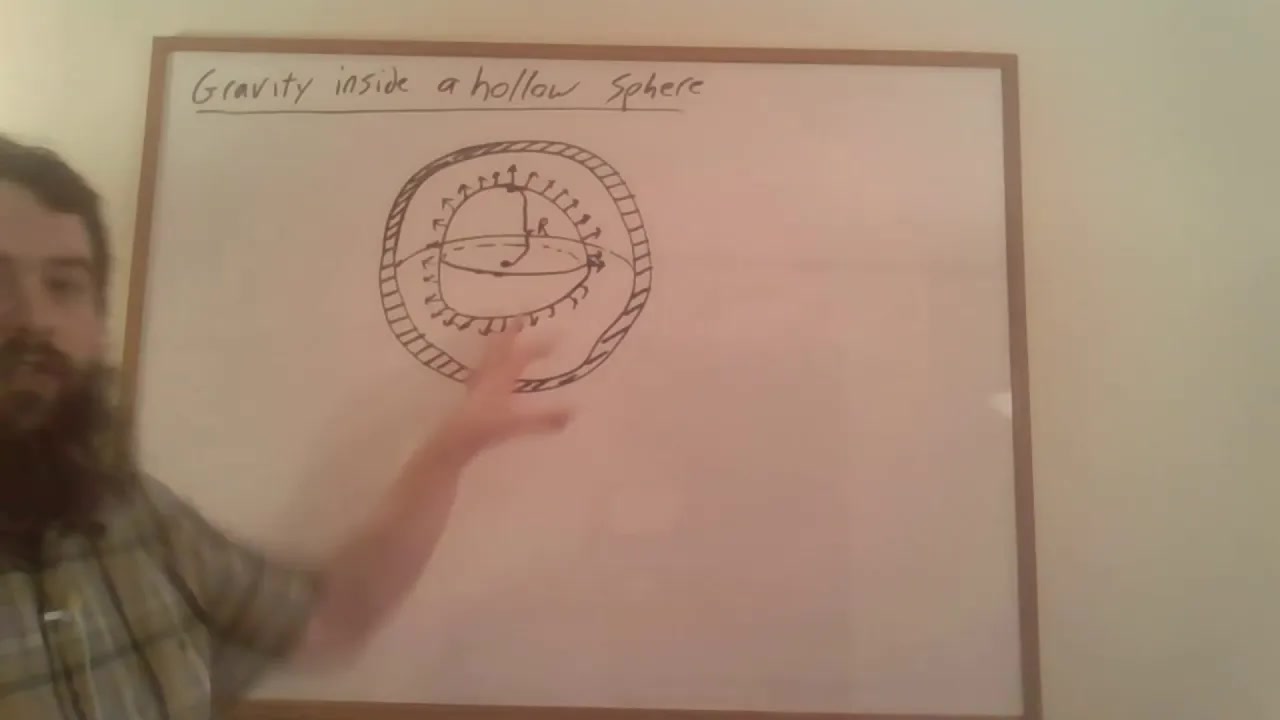 Gravity inside a hollow sphere
R